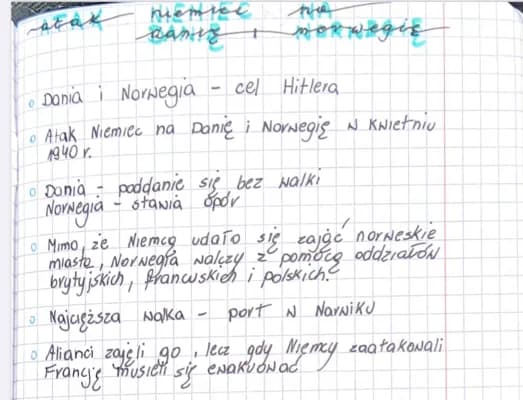 atak niemiec na
danię, norwegię
Dania i Norwegia - cel Hitlera
Atak Niemiec na Danię i Norwegię w kwietniu
1940 r.
Dania - poddanie się bez walki
Norwegia - stawia opór
Mimo, że Niemcą udało się zająć norweskie
miasta, Norwegia walczy z pomocą oddziałów
brytyjskich, francuskich i polskich.
Najcięższa walka - port w Narwiku
Alianci zajęli go, lecz gdy Niemcy zaatakowali
Francję musieli się ewakuować